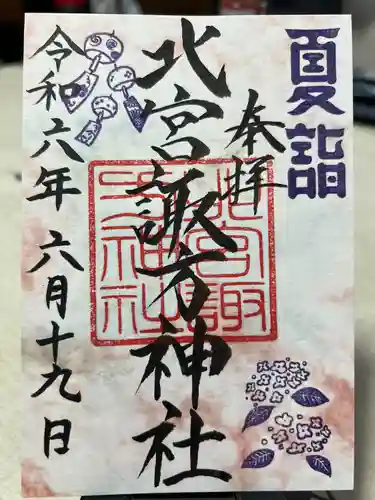 夏詣
奉拝
北宮諏方神社
北宮諏方神社
令和六年 六月十九日